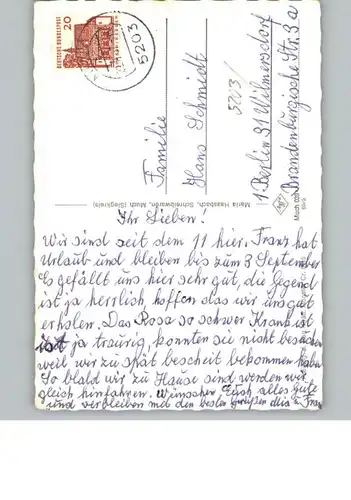 DEUTSCHE BUNDESPOST
20
5203
Familie
Hans Schmidt
5203/
1 Berlin 31 Wilmersdorf
Brandenburgische Str. 3a
Maria Haasbach, Schreibwaren, Much (Siegkreis)
Agfa
Much
Ihr Lieben!
Wir sind seit dem 11 hier. Franz hat
Urlaub und bleiben bis zum 3 September
Es gefällt uns hier sehr gut, die Gegend
ist ja herrlich, hoffen das wir uns gut
erholen. Das Rosa so schwer Krank ist
ist ja traurig, konnten sie nicht besuchen
weil wir zu spät bescheit bekommen haben
So blald wir zu Hause sind werden wir
gleich hinfahren. Wünschen Euch alles Gute
und verbleiben mit den besten Grüßen Mia u. Franz